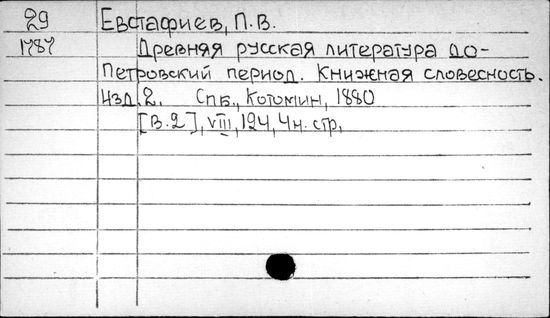 29 Евстафиев, П.В.
1787 Древняя русская литература до-
Петровский период. Книжная словесность.
Изд. 2. Спб., Котомин, 1880
[В.2], VIII, 124, 4н. стр.